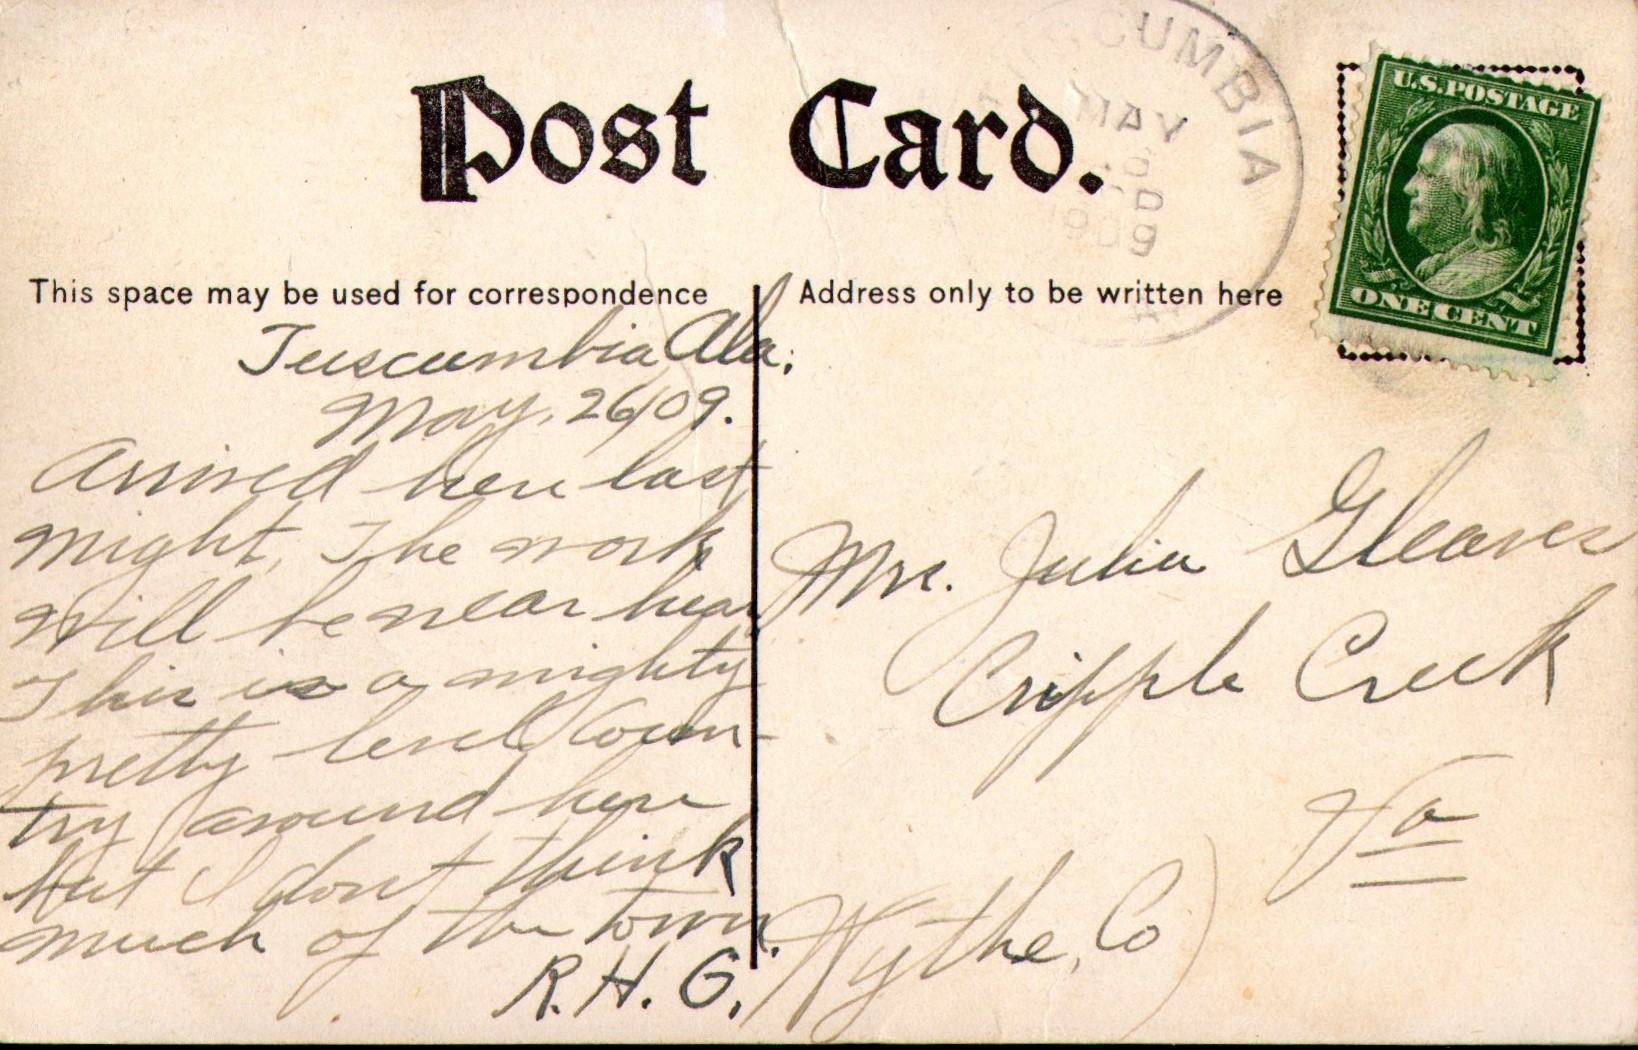 Post Card.
CUMBIA
MAY
1909
U.S. POSTAGE
ONE CENT
This space may be used for correspondence
Address only to be written here
Tuscumbia Ala.
May, 26/09.
Arrived here last
night, The work
will be near hear
This is a mighty
pretty level Coun-
try around here
but I dont think
much of the town.
R. H. G.
Mrs. Julia Gleaves
Cripple Creek
Va
Wythe, Co)